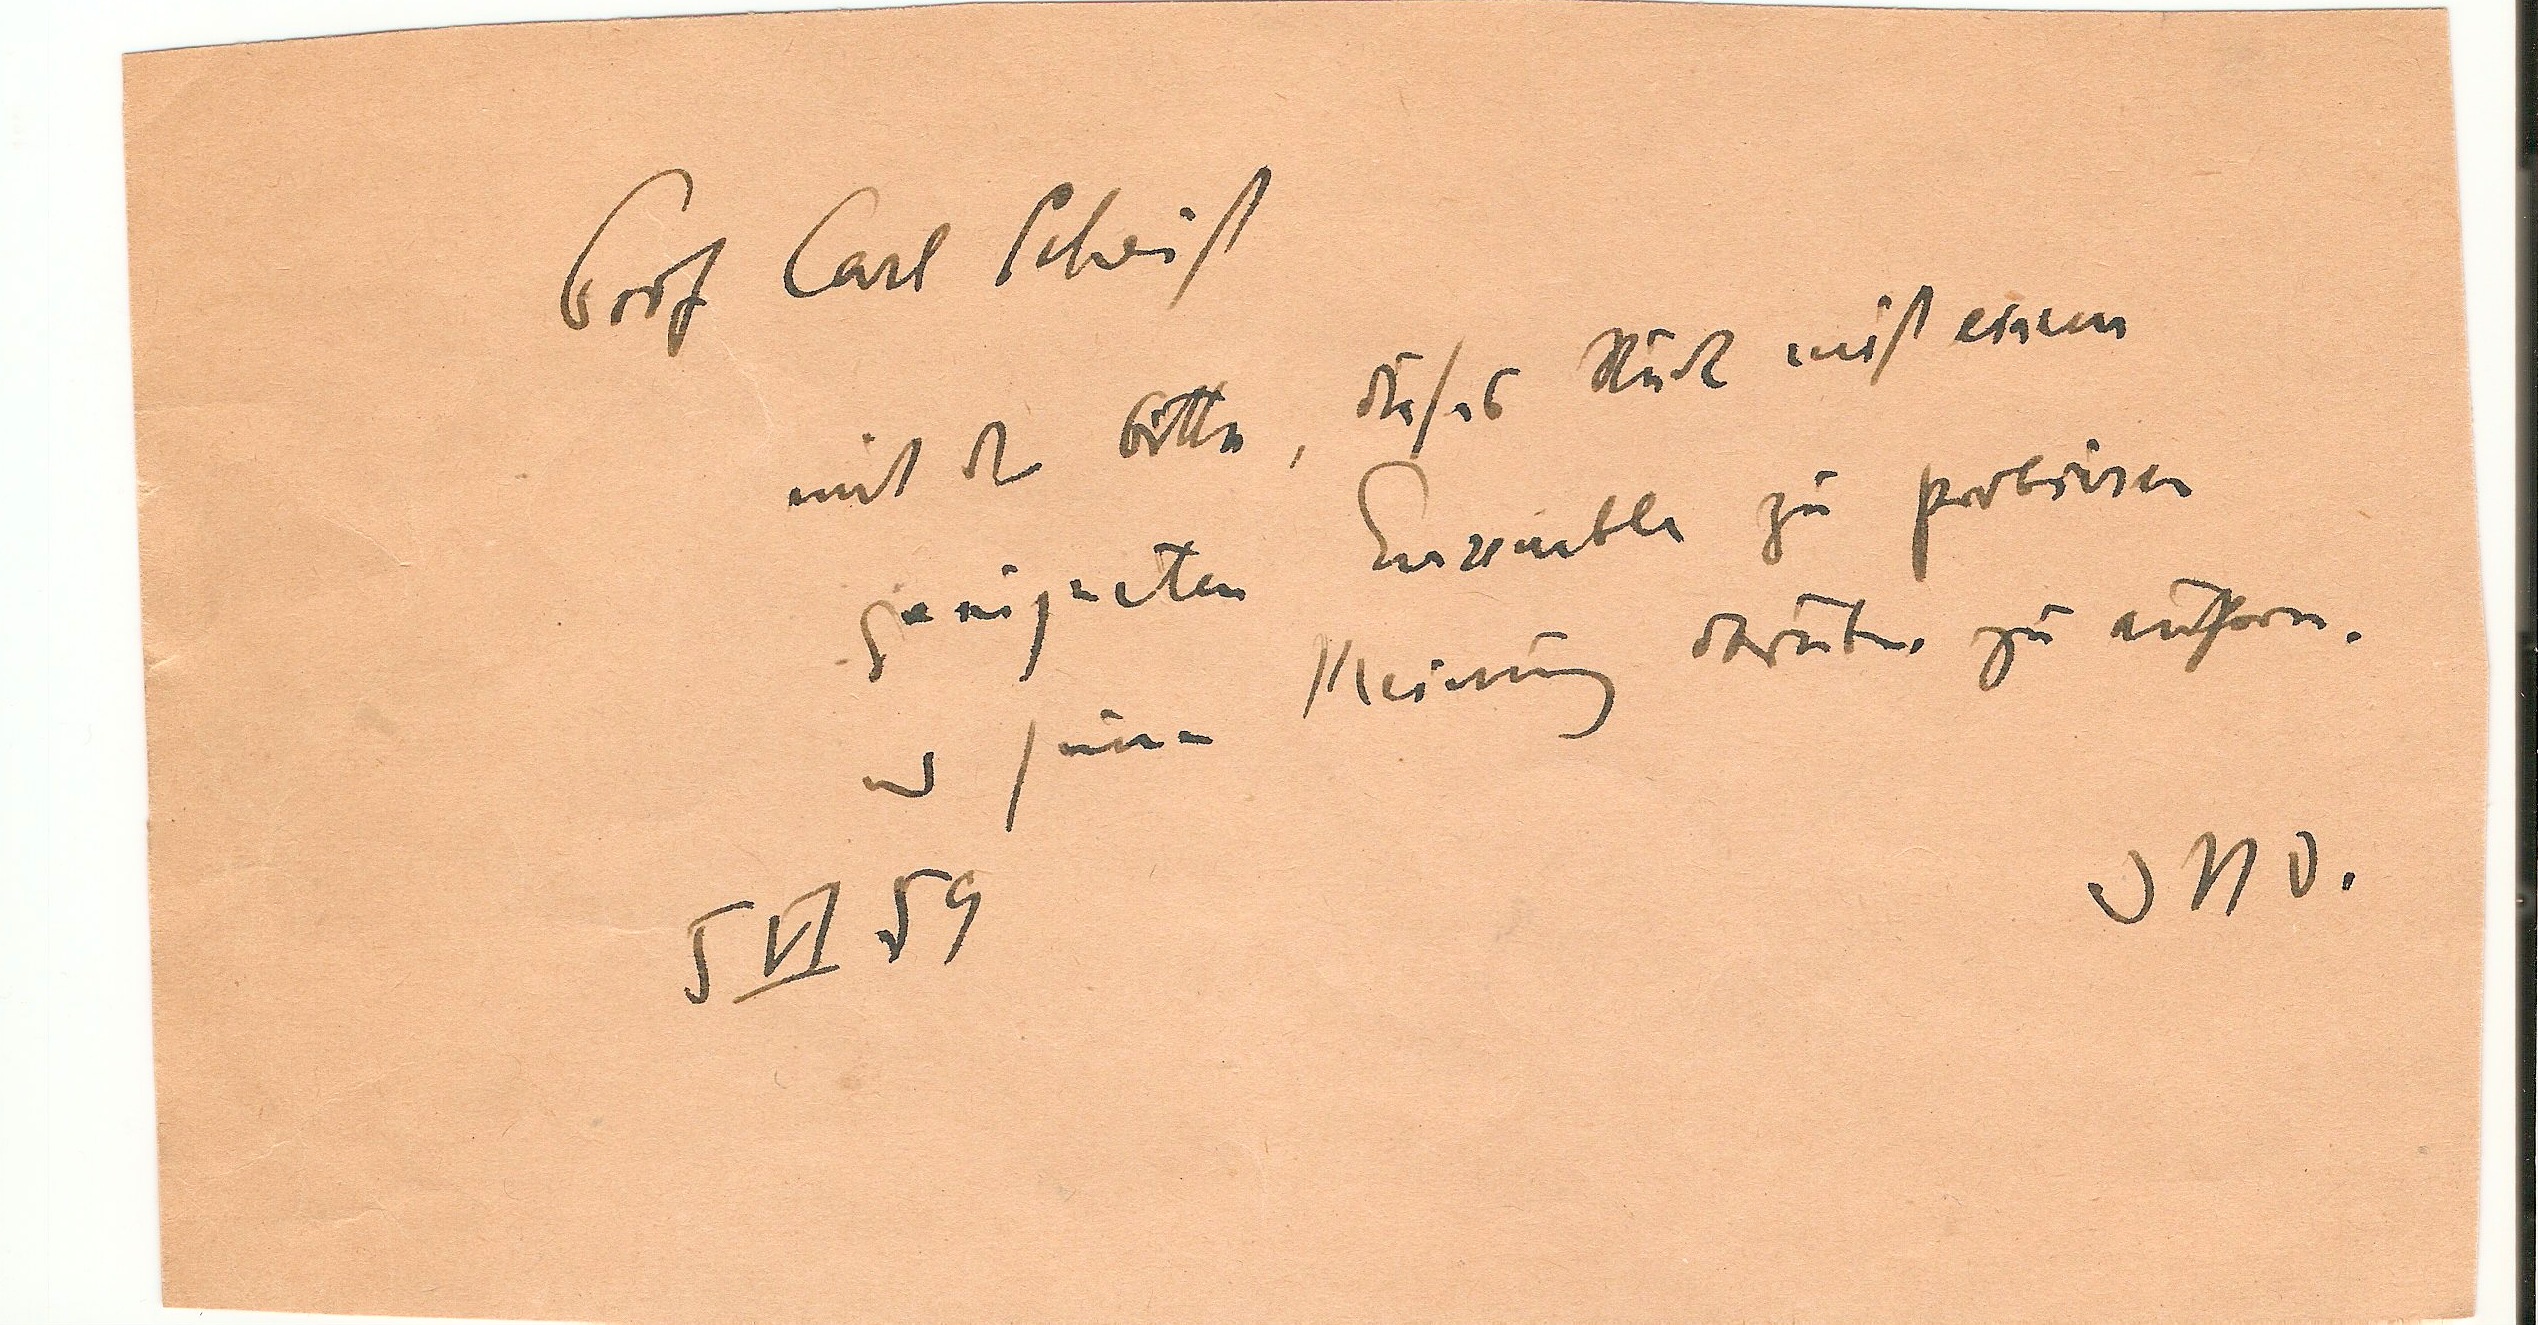 Prof Carl Scheit
mit der Bitte, dieses Stück mit einem
geeigneten Ensemble zu probieren
und seine Meinung darüber zu äussern.
5 VI 59